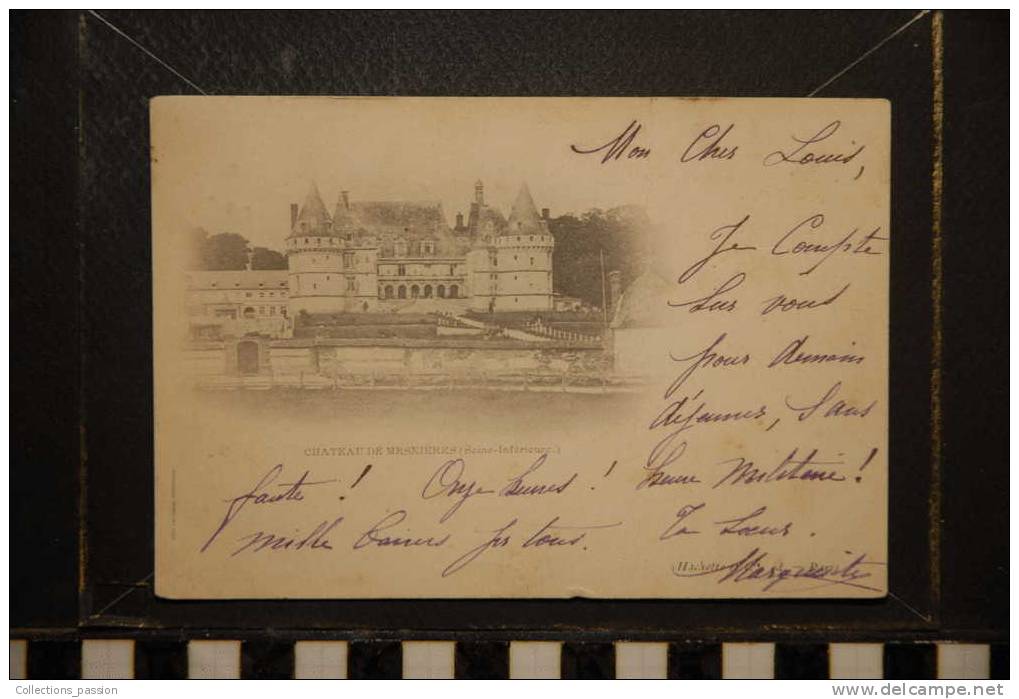 Mon Cher Louis,
Je Compte
Sur vous
pour demain
déjeuner, Sans
faute ! Onze heures ! heure Militaire !
mille baisers pr tous. Ta Soeur.
Marguerite
CHATEAU DE MESNIERES (Seine-Inférieure.)
Collections_passion
www.delcampe.net